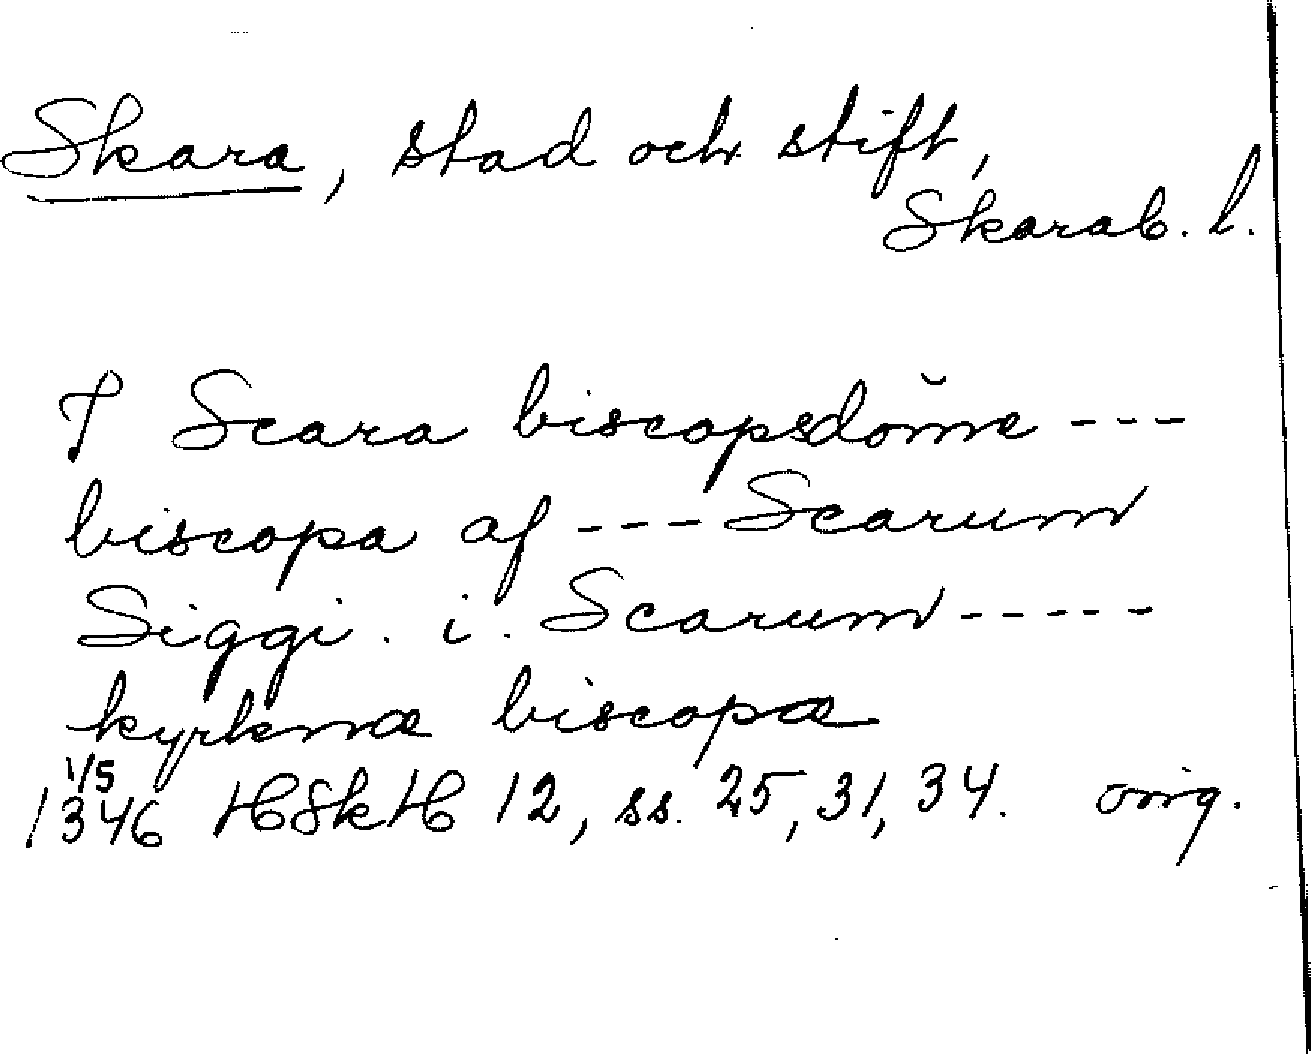 Skara, stad och stift,
Skarab. l.
J Scara biscopsdom̆e ---
biscopa af --- Scarum
Siggi . i . Scarum -----
kyrknæ biscopæ
1/5
1346 HSkH 12, ss. 25, 31, 34. orig.